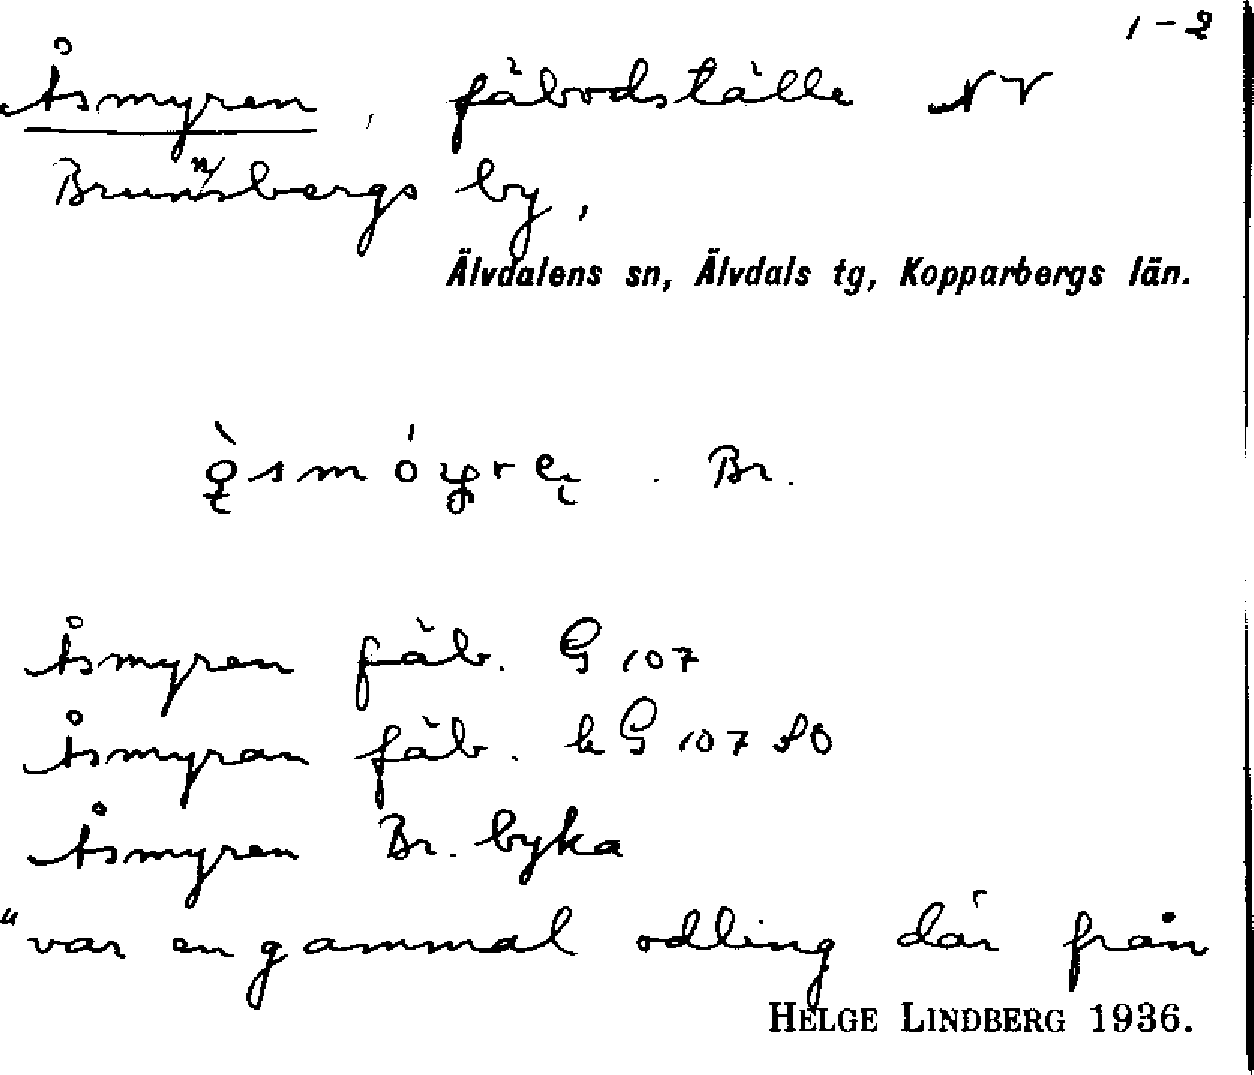 1-2
Åsmyren, fäbodställe NV
Brunnsbergs by,
Älvdalens sn, Älvdals tg, Kopparbergs län.
Br.
Åsmyren fäb. G 107
Åsmyran fäb. kG 107 SO
Åsmyren Br. byka
"var en gammal odling där från
HELGE LINDBERG 1936.